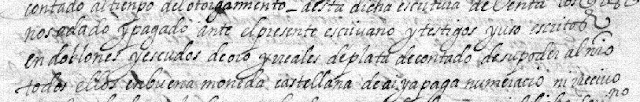 contado al tiempo del otorgamento desta dicha escritura de Venta los
nos a dado y pagado ante el presente escrivano y testigos yuso escritos
en doblones y escudos de oro y reales de plata de contado de su poder al nro
todos ellos en buena moneda castellana de cuya paga numeracio ni recivo